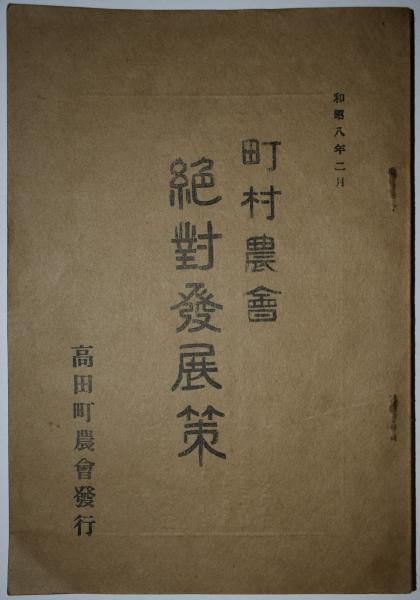 和昭八年二月
町村農會
絶對發展策
高田町農會發行